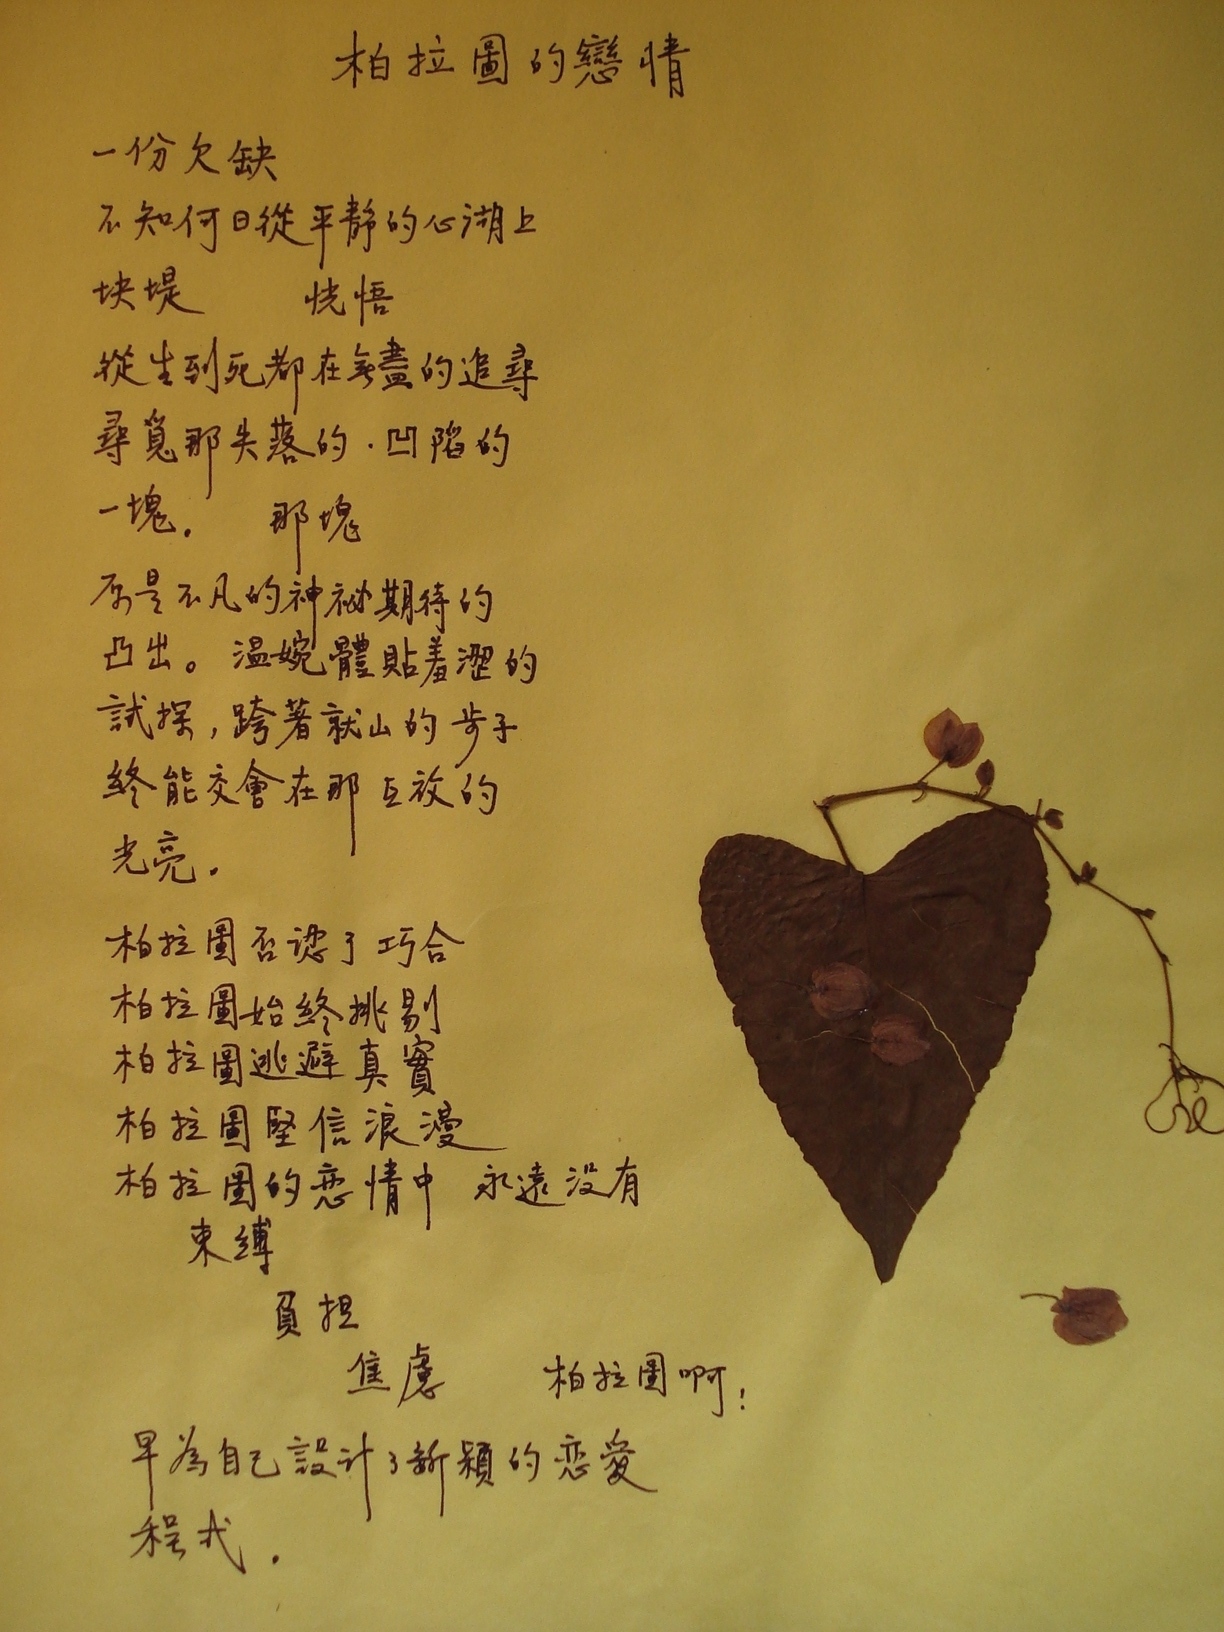 柏拉圖的戀情
一份欠缺
不知何日從平靜的心湖上
块堤 恍悟
從生到死都在無盡的追尋
尋覓那失落的．凹陷的
一塊． 那塊
原是不凡的神祕期待的
凸出。溫婉體貼羞澀的
試探，跨著就山的步子
終能交會在那互放的
光亮．
柏拉圖否認了巧合
柏拉圖始終挑剔
柏拉圖逃避真實
柏拉圖堅信浪漫
柏拉圖的恋情中 永遠沒有
束縛
負担
焦慮 柏拉圖啊！
早為自己設計了新穎的恋愛
程式．